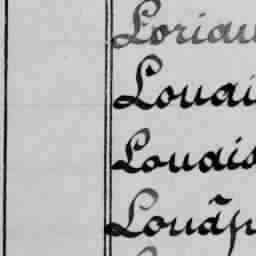 Loriau
Louai
Louais
Louãp